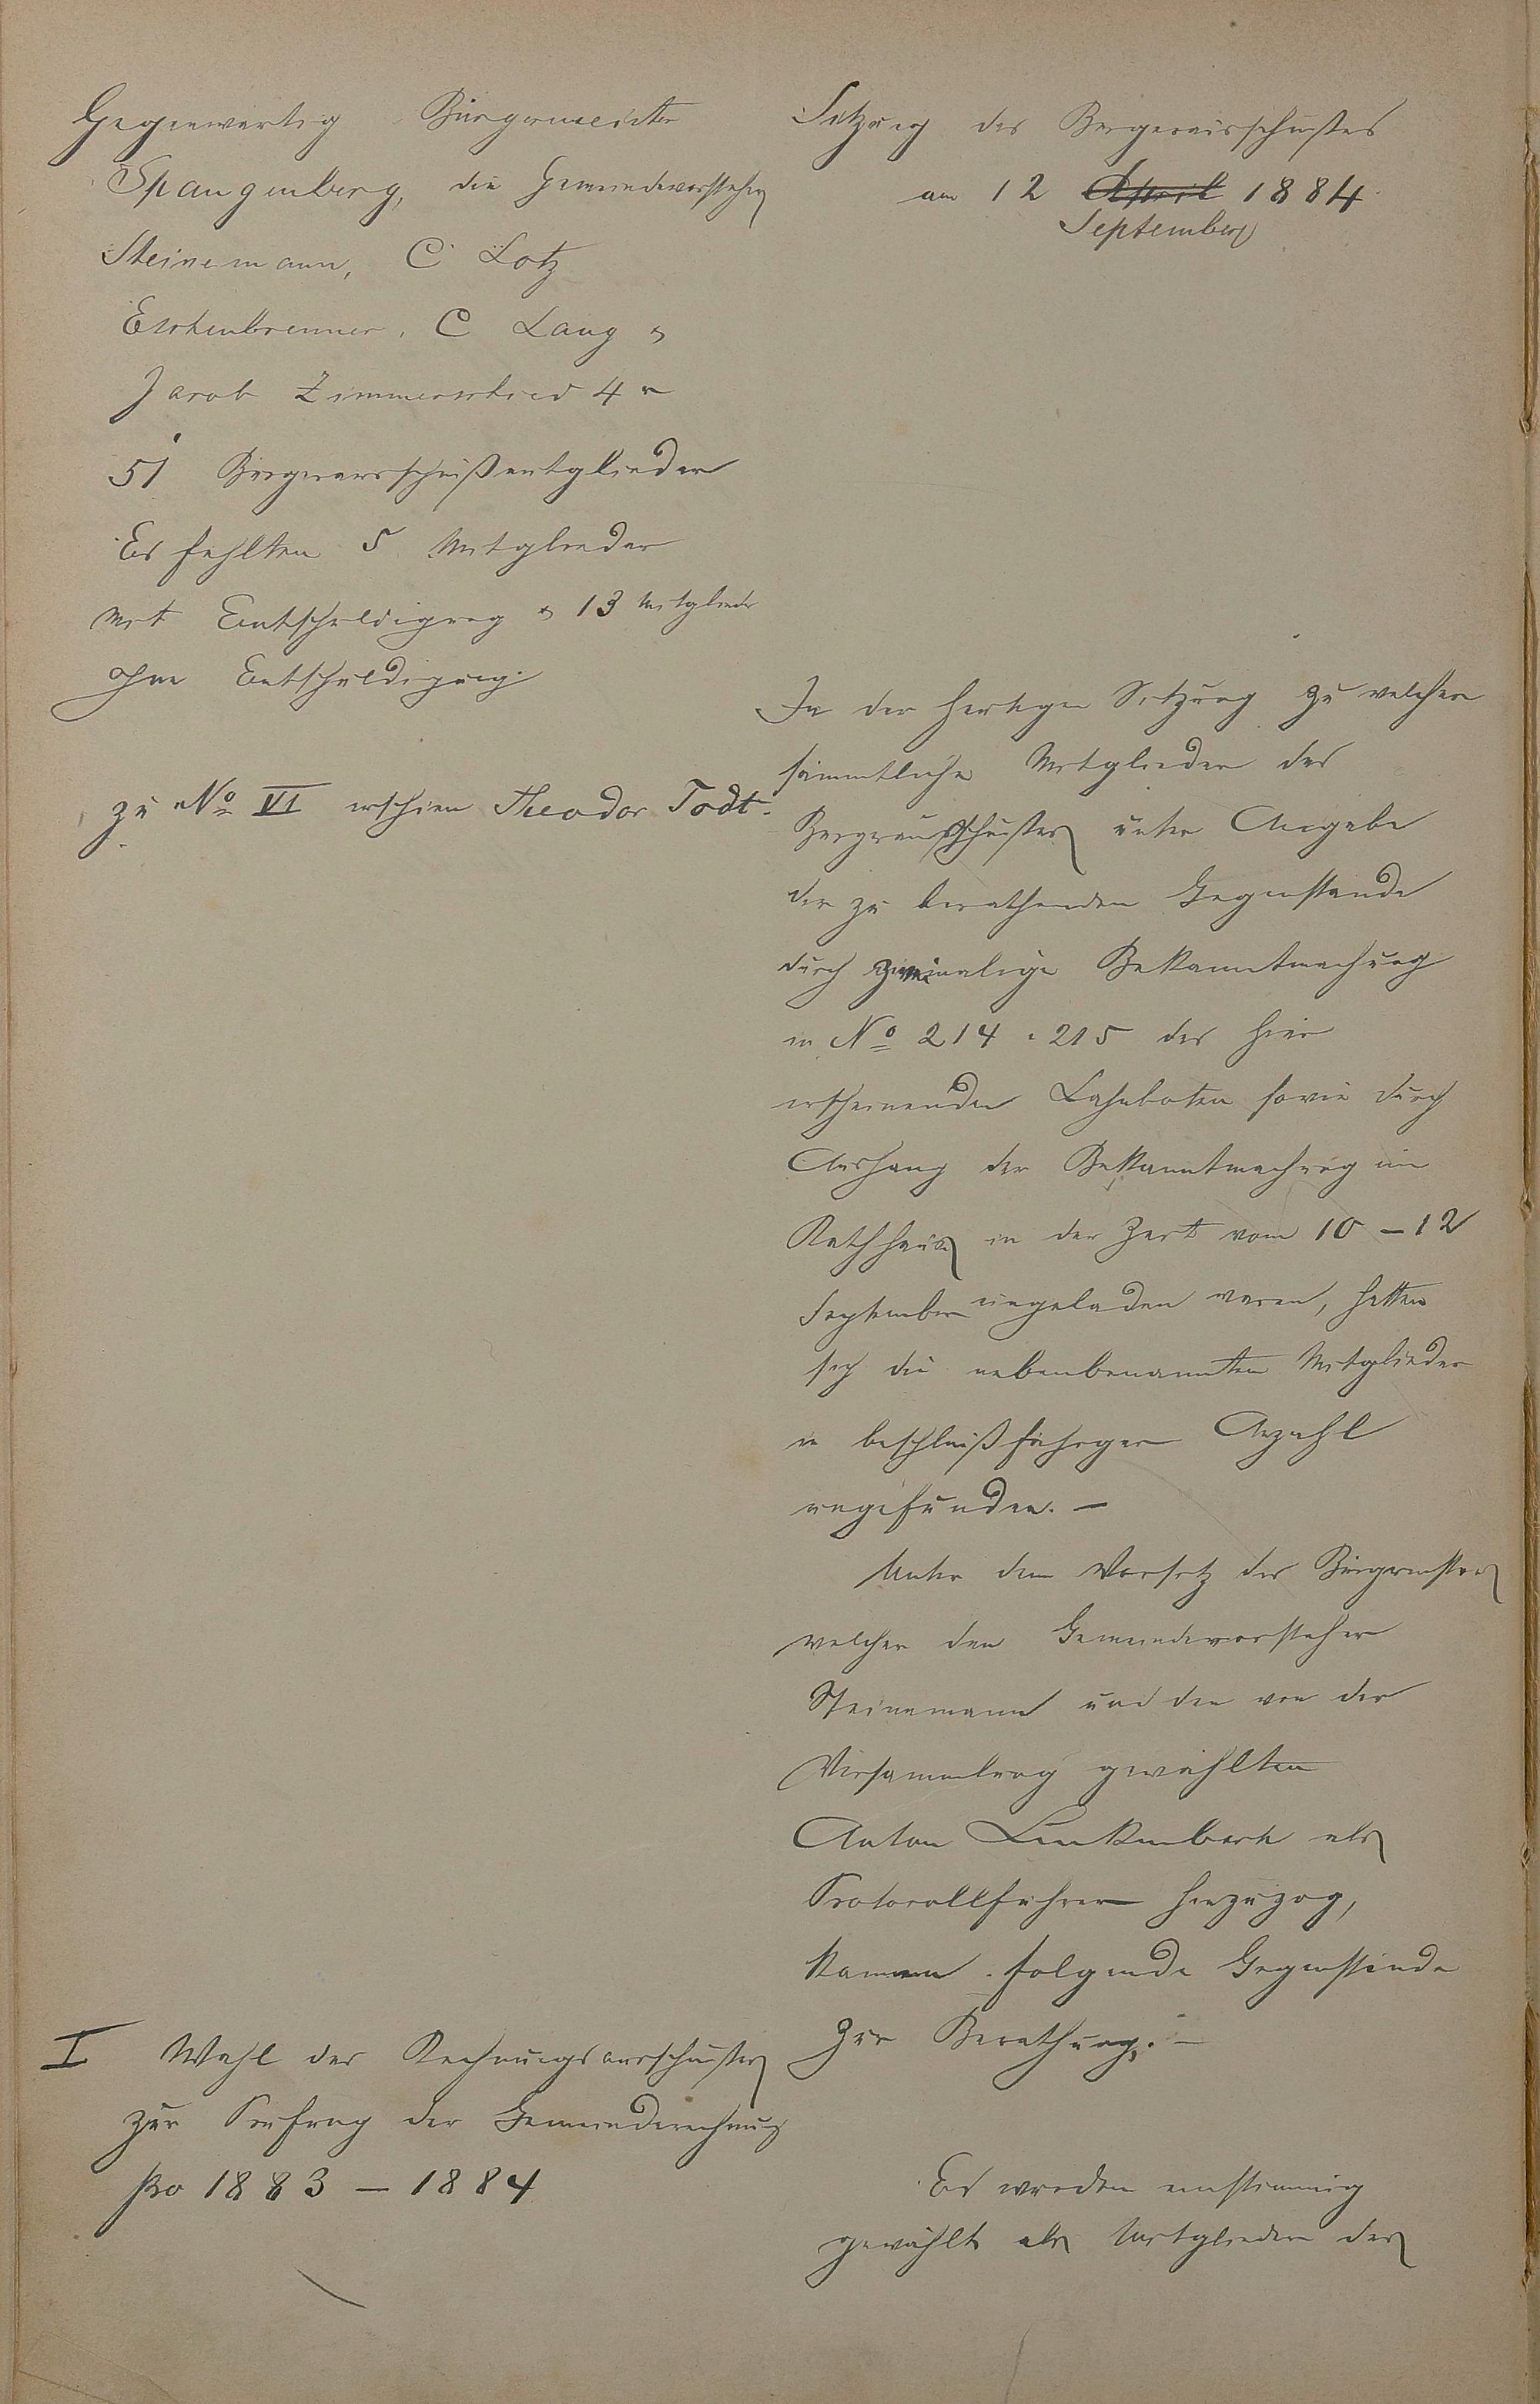 Gegenwärtig Bürgermeister
Spangenberg, die Gemeindevorsteher
Steinemann, C Lotz
Eschenbrenner, C Lang &
Jacob Zimmerschied 4r
51 Bürgerausschußmitglieder
Es fehlten 5 Mitglieder
mit Entschuldigung & 13 Mitglieder
ohne Entschuldigung.
zu No VI erschien Theodor Todt.
I Wahl des Rechnungsausschusses
zur Prüfung der Gemeinderechnung
pro 1883 – 1884
Sitzung des Bürgerausschusses
am 12 April 1884.
September
In der heutigen Sitzung zu welcher
sämmtliche Mitglieder des
Bürgerausschusses unter Angabe
der zu berathenden Gegenstände
durch zweimalige Bekanntmachung
in No 214 & 215 des hier
erscheinenden Lahnboten sowie durch
Aushang der Bekanntmachung im
Rathhaus in der Zeit vom 10 – 12
September eingeladen waren, hatten
sich die nebenbenannten Mitglieder
in beschlußfähiger Anzahl
eingefunden. –
Unter dem Vorsitz des Bürgermeisters
welcher den Gemeindevorsteher
Steinemann und den von der
Versammlung gewählten
Anton Linkenbach als
Protocollführer hinzuzog,
kamen folgende Gegenstände
zur Berathung: –
Es wurden einstimmig
gewählt als Mitglieder des